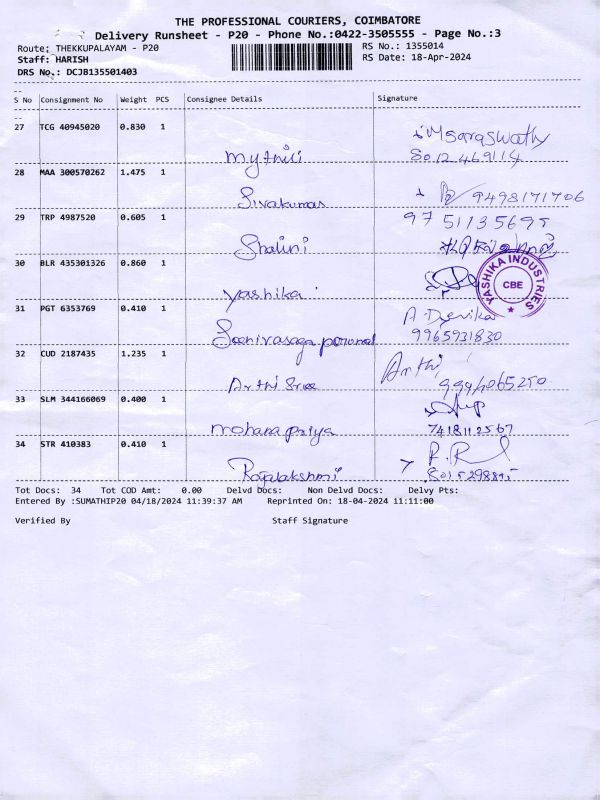 THE PROFESSIONAL COURIERS, COIMBATORE
Delivery Runsheet - P20 - Phone No.:0422-3505555 - Page No.:3
Route: THEKKUPALAYAM - P20
RS No.: 1355014
Staff: HARISH
RS Date: 18-Apr-2024
DRS No.: DCJB135501403
S No Consignment No Weight PCS Consignee Details Signature
27 TCG 40945020 0.830 1
M Saraswathy
mythili
28 MAA 300570262 1.475 1
Sivakumar 9498171706
29 TRP 4987520 0.605 1
Shalini
30 BLR 435301326 0.860 1
yashika
YASHIKA INDUSTRIES
CBE
31 PGT 6353769 0.410 1
A Devika
9965931830
32 CUD 2187435 1.235 1
Arthi
Arthi Sree
33 SLM 344166069 0.400 1
mohana priya 7418112567
34 STR 410383 0.410 1
Rajalakshmi
Tot Docs: 34 Tot COD Amt: 0.00 Delvd Docs: Non Delvd Docs: Delvy Pts:
Entered By :SUMATHIP20 04/18/2024 11:39:37 AM Reprinted On: 18-04-2024 11:11:00
Verified By Staff Signature